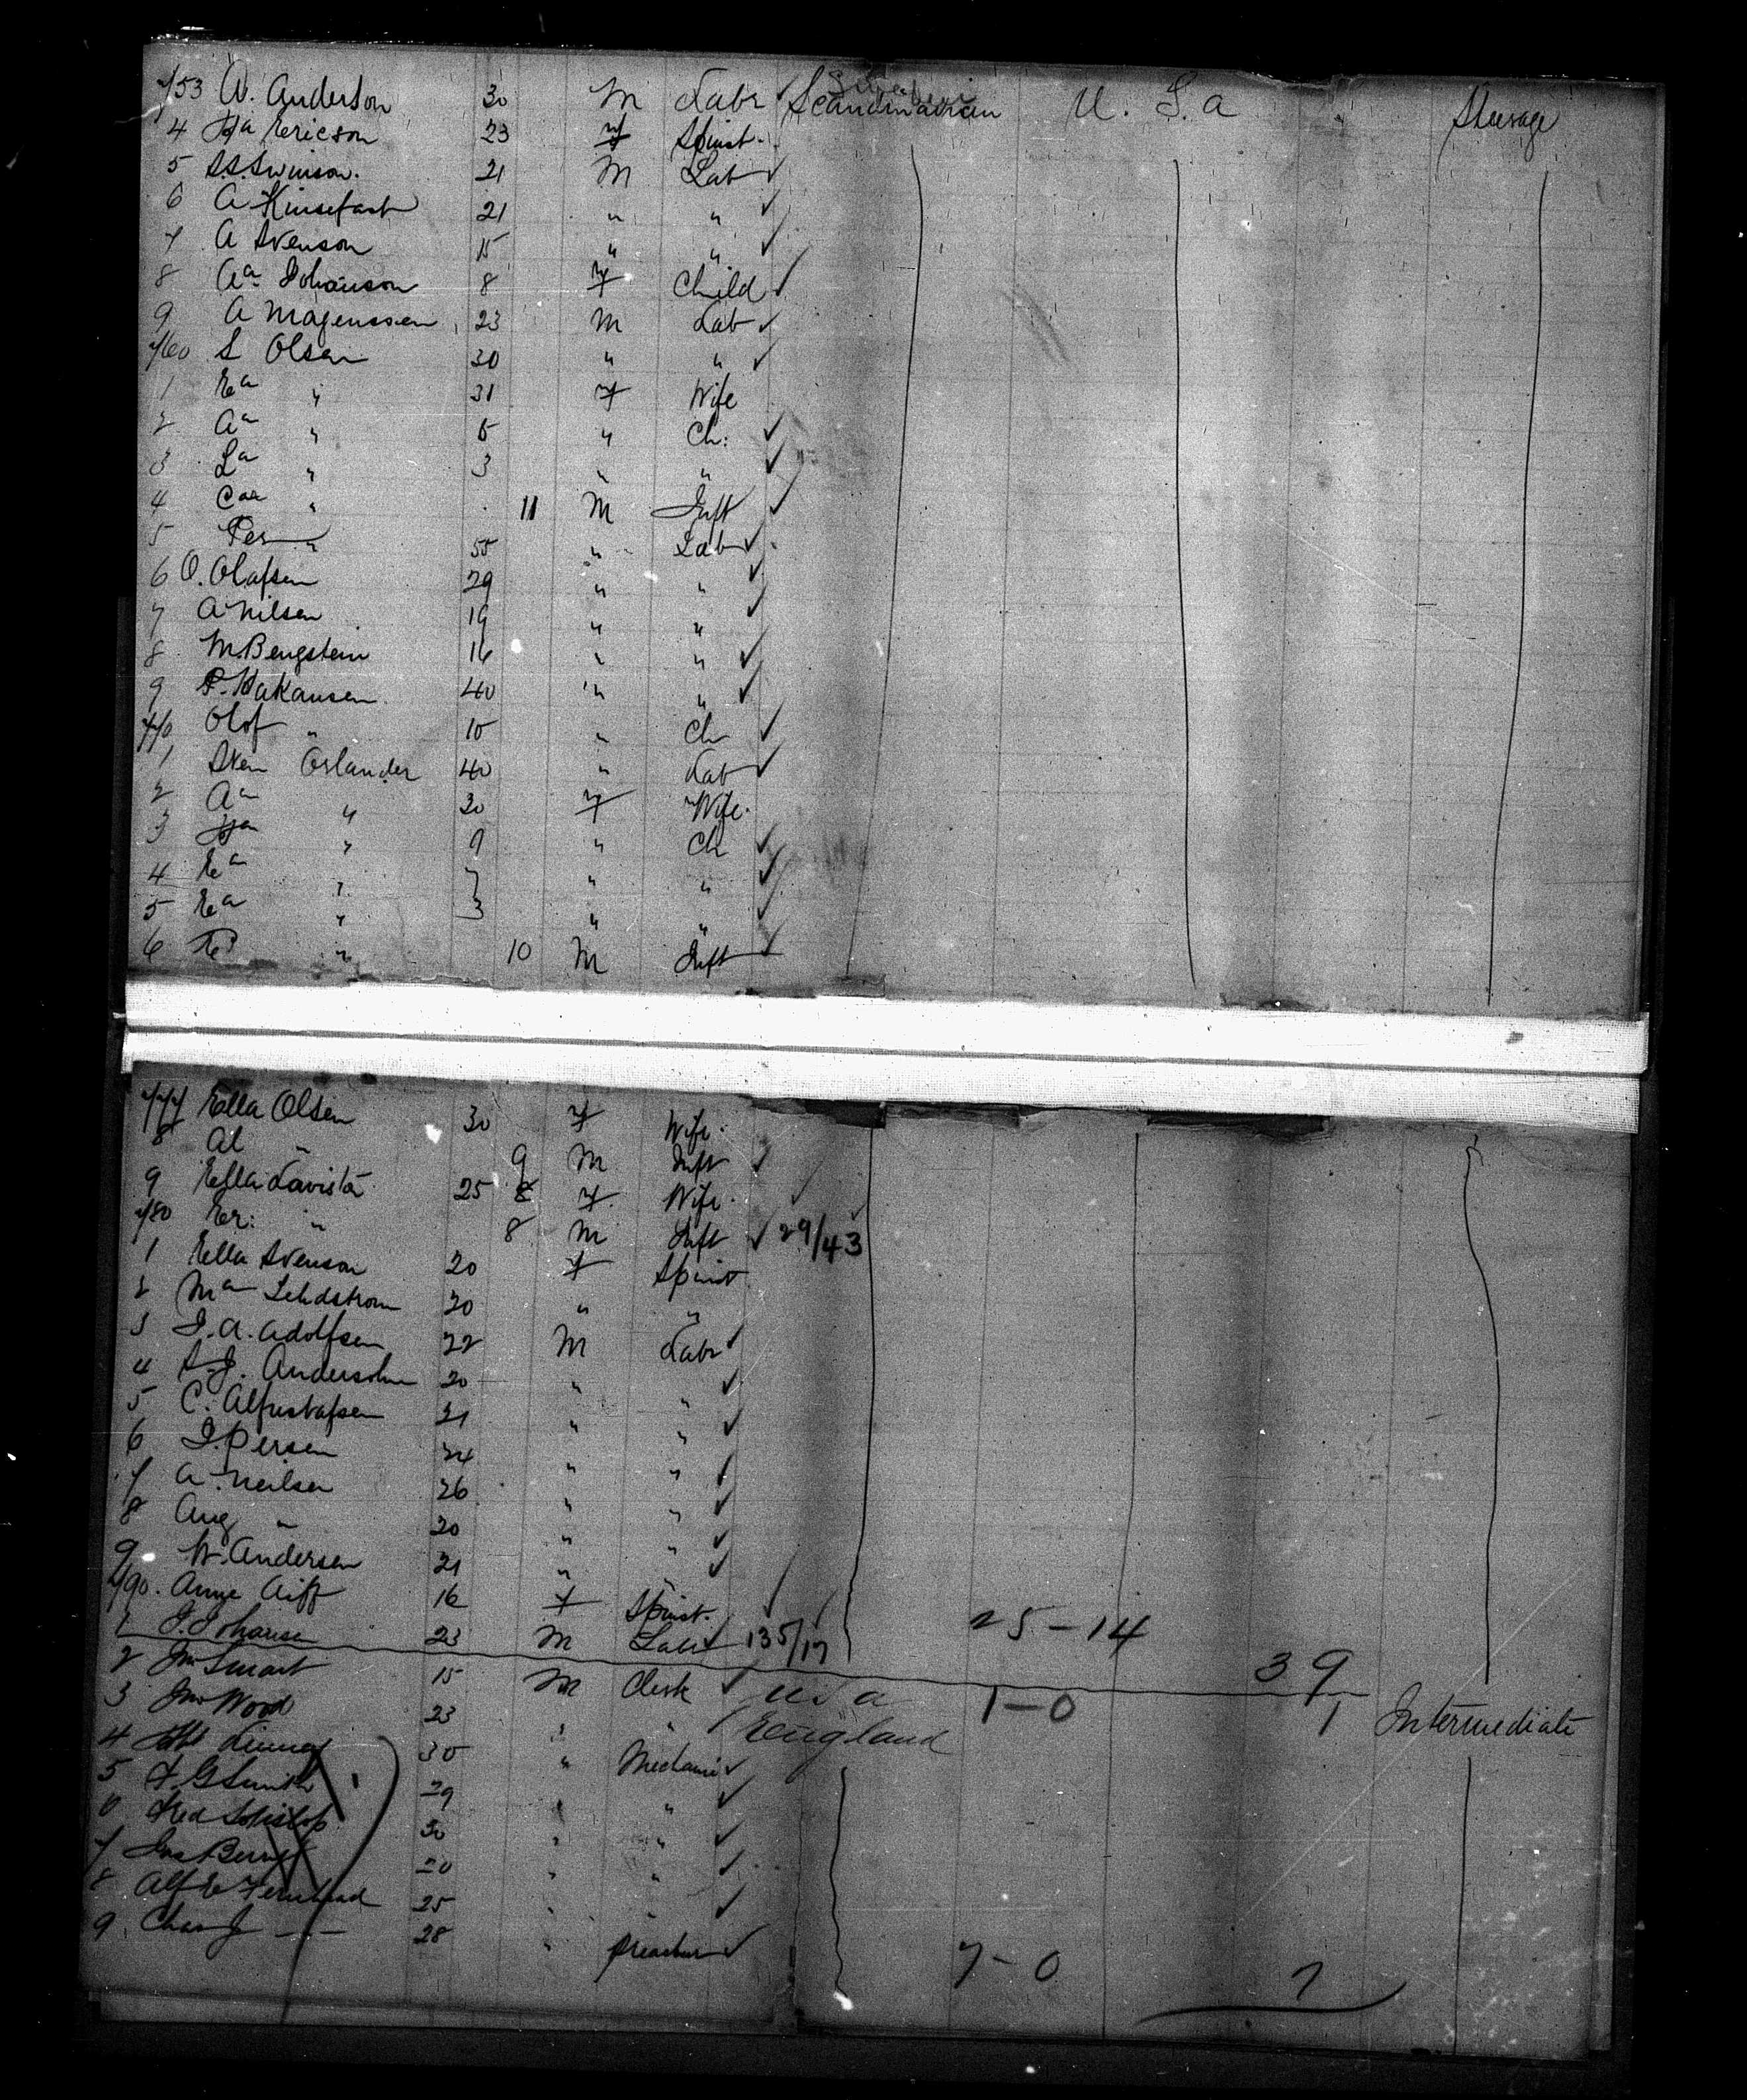 753 A. Anderson 30 M Labr Scandinavian Sweden U. S. a Steerage
4 Ha Ericson 23 f Spinst.
5 S.S. Swinson. 21 M Lab
6 A 21 " "
7 A Svenson 15 " "
8 Aa Johanson 8 f Child
9 A Magenssen 23 M Lab
760 S Olsen 30 " "
1 Ea " 31 f Wife
2 Aa " 5 " Ch:
3 La " 3 " "
4 Car " 11 M Inft
5 Per " 55 " Lab
6 O. Olafsen 29 " "
7 A Nilsen 19 " "
8 M. Bengstein 16 " "
9 P. Hakansen 40 " "
770 Olof " 10 " Ch
1 Sven Orlander 40 " Lab
2 Aa " 30 f Wife.
3 " 9 " Ch
4 Ea " } " "
5 Ea " 3 " "
6 " 10 M Inft
777 Ella Olsen 30 f Wife.
8 Al " 9 M Inft
9 Ella Lavista 25 f. Wife.
780 Er: " 8 M Inft 29/43
1 Ella Svenson 20 f Spinst
2 Ma 20 " "
3 J. A. Adolfsen 22 M Labr
4 A. J. Andersohn 20 " "
5 C. Alfustafsen 21 " "
6 J. Persen 24 " "
7 A. Neilsen 26 " "
8 Aug " 20 " "
9 W. Andersen 21 " "
790. Anne Aiff 16 f Spinst.
1 J. Johansen 23 M Labr 135/17 25-14 39
2 Jno Smart 15 M Clerk U S a 1-0 1 Intermediate
3 Jno Wood 23 " " England
4 30 " Mechanic
5 F. G Smith 29 " "
6 Fred 30 " "
7 Jas 20 " "
8 Alf E 25 " "
9. Chas J — 28 " Preacher 7-0 7